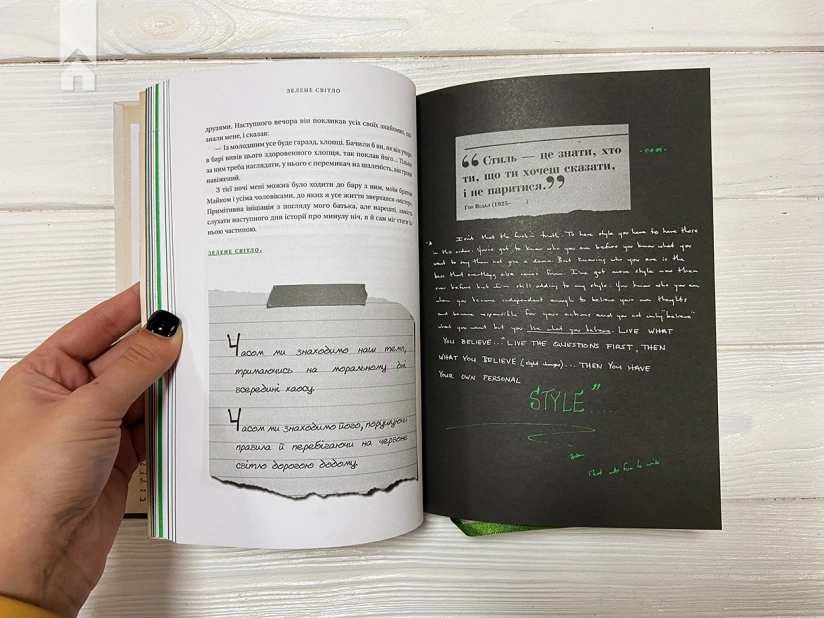 ЗЕЛЕНЕ СВІТЛО
друзями. Наступного вечора він покликав усіх своїх знайомих, що
знали мене, і сказав:
— Із молодшим усе буде гаразд, хлопці. Бачили б ви, як він учора
в барі вивів цього здоровенного хлопця, так поклав його... Тільки
за ним треба наглядати, у нього є перемикач на шаленість, він трохи
навіжений.
З тієї ночі мені можна було ходити до бару з ним, моїм братом
Майком і усіма чоловіками, до яких я усе життя звертався «містер».
Примітивна ініціація з погляду мого батька, але нарешті, замість
слухати наступного дня історії про минулу ніч, я й сам міг стати їх-
ньою частиною.
ЗЕЛЕНЕ СВІТЛО.
Часом ми знаходимо наш темп,
тримаючись на моральному дні
всередині хаосу.
Часом ми знаходимо його, порушуючи
правила й перебігаючи на червоне
світло дорогою додому.
“Стиль — це знати, хто
ти, що ти хочеш сказати,
і не паритися.”
Ґор Відал (1925– )
that the truth. To have style you have to have these
in this order. You've got to know who you are before you know what you
want to say then not give a damn. But knowing who you are is the
base that everything else comes from. I've got more style now than
ever before but I'm still adding to my style. You know who you are
when you become independent enough to believe your own thoughts
and become responsible for your actions and you not only "believe"
what you want but you live what you believe. LIVE WHAT
YOU BELIEVE... "LIVE THE QUESTIONS FIRST, THEN
WHAT YOU BELIEVE (right changes)... THEN YOU HAVE
YOUR OWN PERSONAL
STYLE"